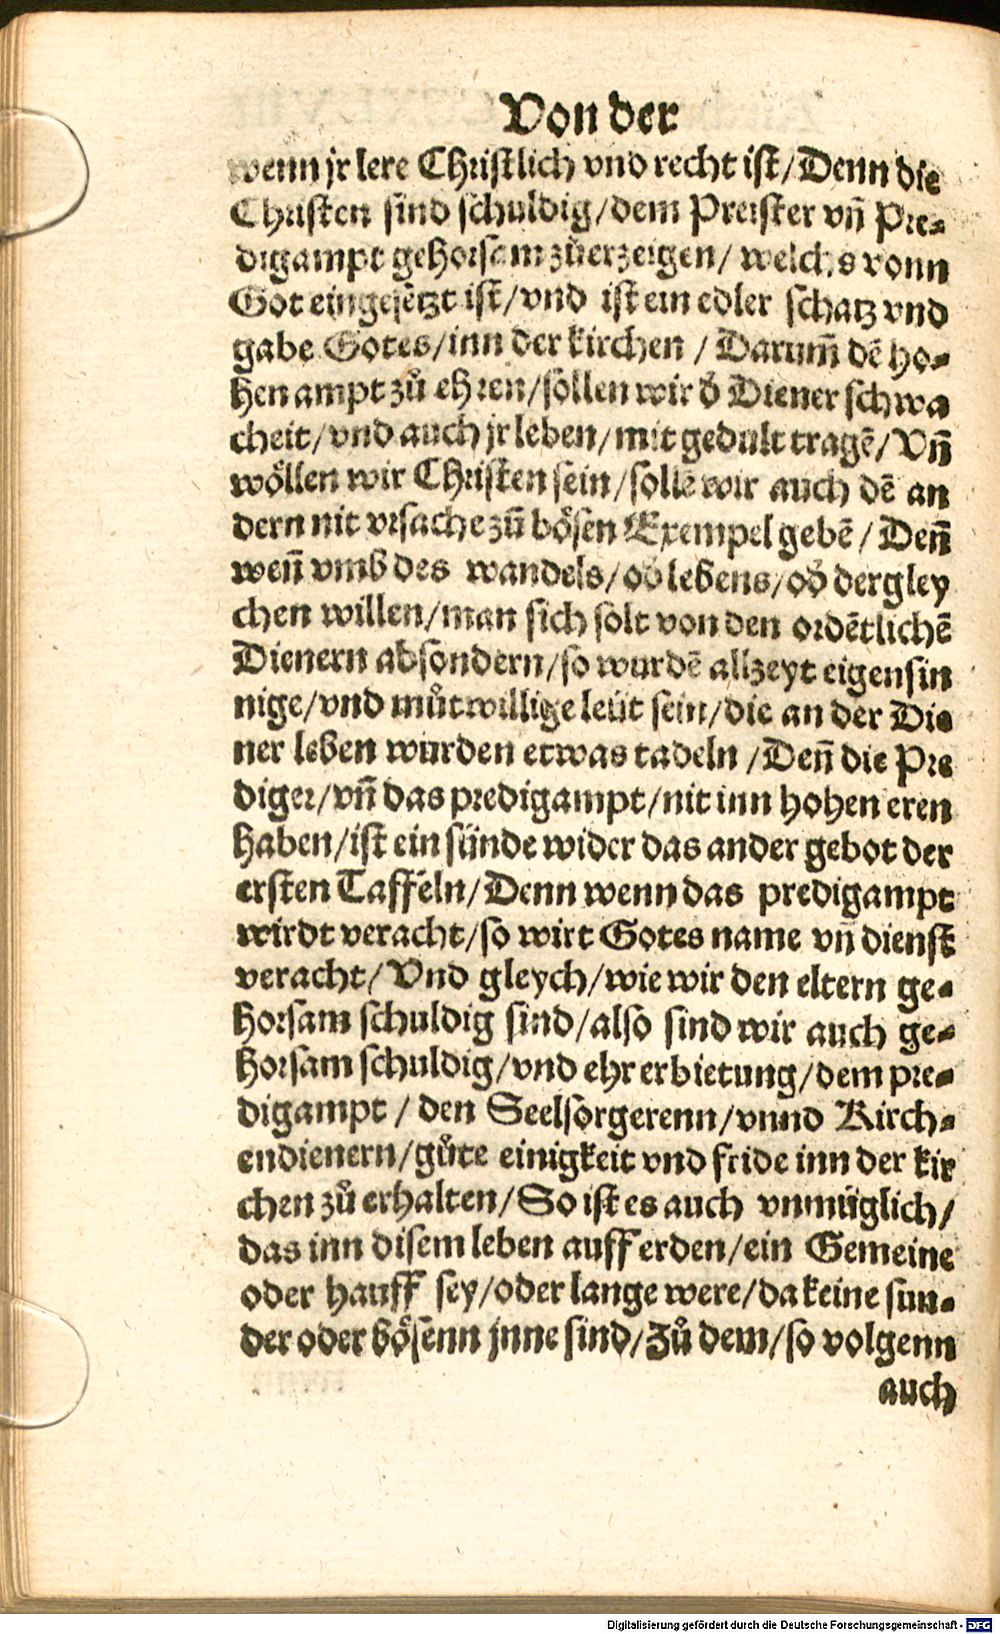 Von der
wenn jr lere Christlich vnd recht ist/Denn die
Christen sind schuldig/dem Preister vñ Pre⸗
digampt gehorsam zůerzeigen/ welchs vonn
Got eingesetzt ist/vnd ist ein edler schatz vnd
gabe Gotes/inn der kirchen / Darum̃ dẽ ho⸗
hen ampt zů ehren/söllen wir ď Diener schwa
cheit/vnd auch jr leben/mit gedult tragẽ/Vñ
wöllen wir Christen sein/sollẽ wir auch dẽ an
dern nit vrsache zũ bösen Exempel gebẽ / Deñ
weñ vmb des wandels/oď lebens/oď dergley
chen willen/man sich solt von den ordẽtlichẽ
Dienern absondern/so wurdẽ allzeyt eigensin
nige/vnd můtwillige leüt sein/die an der Die
ner leben wurden etwas tadeln /Deñ die Pre
diger/vñ das predigampt/nit inn hohen eren
haben/ist ein sünde wider das ander gebot der
ersten Taffeln/Denn wenn das predigampt
wirdt veracht/so wirt Gotes name vñ dienst
veracht/Vnd gleych/wie wir den eltern ge⸗
horsam schuldig sind/also sind wir auch ge⸗
horsam schuldig/vnd ehr erbietung/dem pre⸗
digampt / den Seelsorgerenn/vnnd Kirch⸗
endienern/gůte einigkeit vnd fride inn der kir
chen zů erhalten/So ist es auch vnmüglich/
das inn disem leben auff erden/ein Gemeine
oder hauff sey/oder lange were/da keine sun⸗
der oder bösenn jnne sind/Zů dem/so volgenn
auch
Digitalisierung gefördert durch die Deutsche Forschungsgemeinschaft - DFG